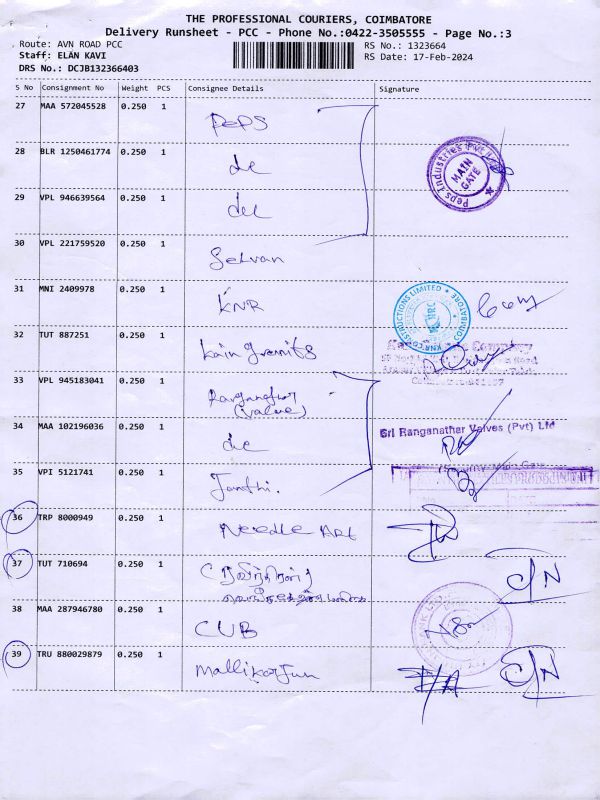 THE PROFESSIONAL COURIERS, COIMBATORE
Delivery Runsheet - PCC - Phone No.:0422-3505555 - Page No.:3
Route: AVN ROAD PCC RS No.: 1323664
Staff: ELAN KAVI RS Date: 17-Feb-2024
DRS No.: DCJB132366403
S No Consignment No Weight PCS Consignee Details Signature
27 MAA 572045528 0.250 1 PePS
28 BLR 1250461774 0.250 1 do
Peps Industries Pvt MAIN GATE
29 VPL 946639564 0.250 1 do
30 VPL 221759520 0.250 1 Selvan
31 MNI 2409978 0.250 1 KNR
KNR CONSTRUCTIONS LIMITED COIMBATORE
32 TUT 887251 0.250 1
33 VPL 945183041 0.250 1 (value)
34 MAA 102196036 0.250 1 do
Sri Ranganathar Valves (Pvt) Ltd
35 VPI 5121741 0.250 1 Janthi.
36 TRP 8000949 0.250 1 Needle Art
37 TUT 710694 0.250 1 C/N
38 MAA 287946780 0.250 1 CUB
39 TRU 880029879 0.250 1 Mallikarjun C/N